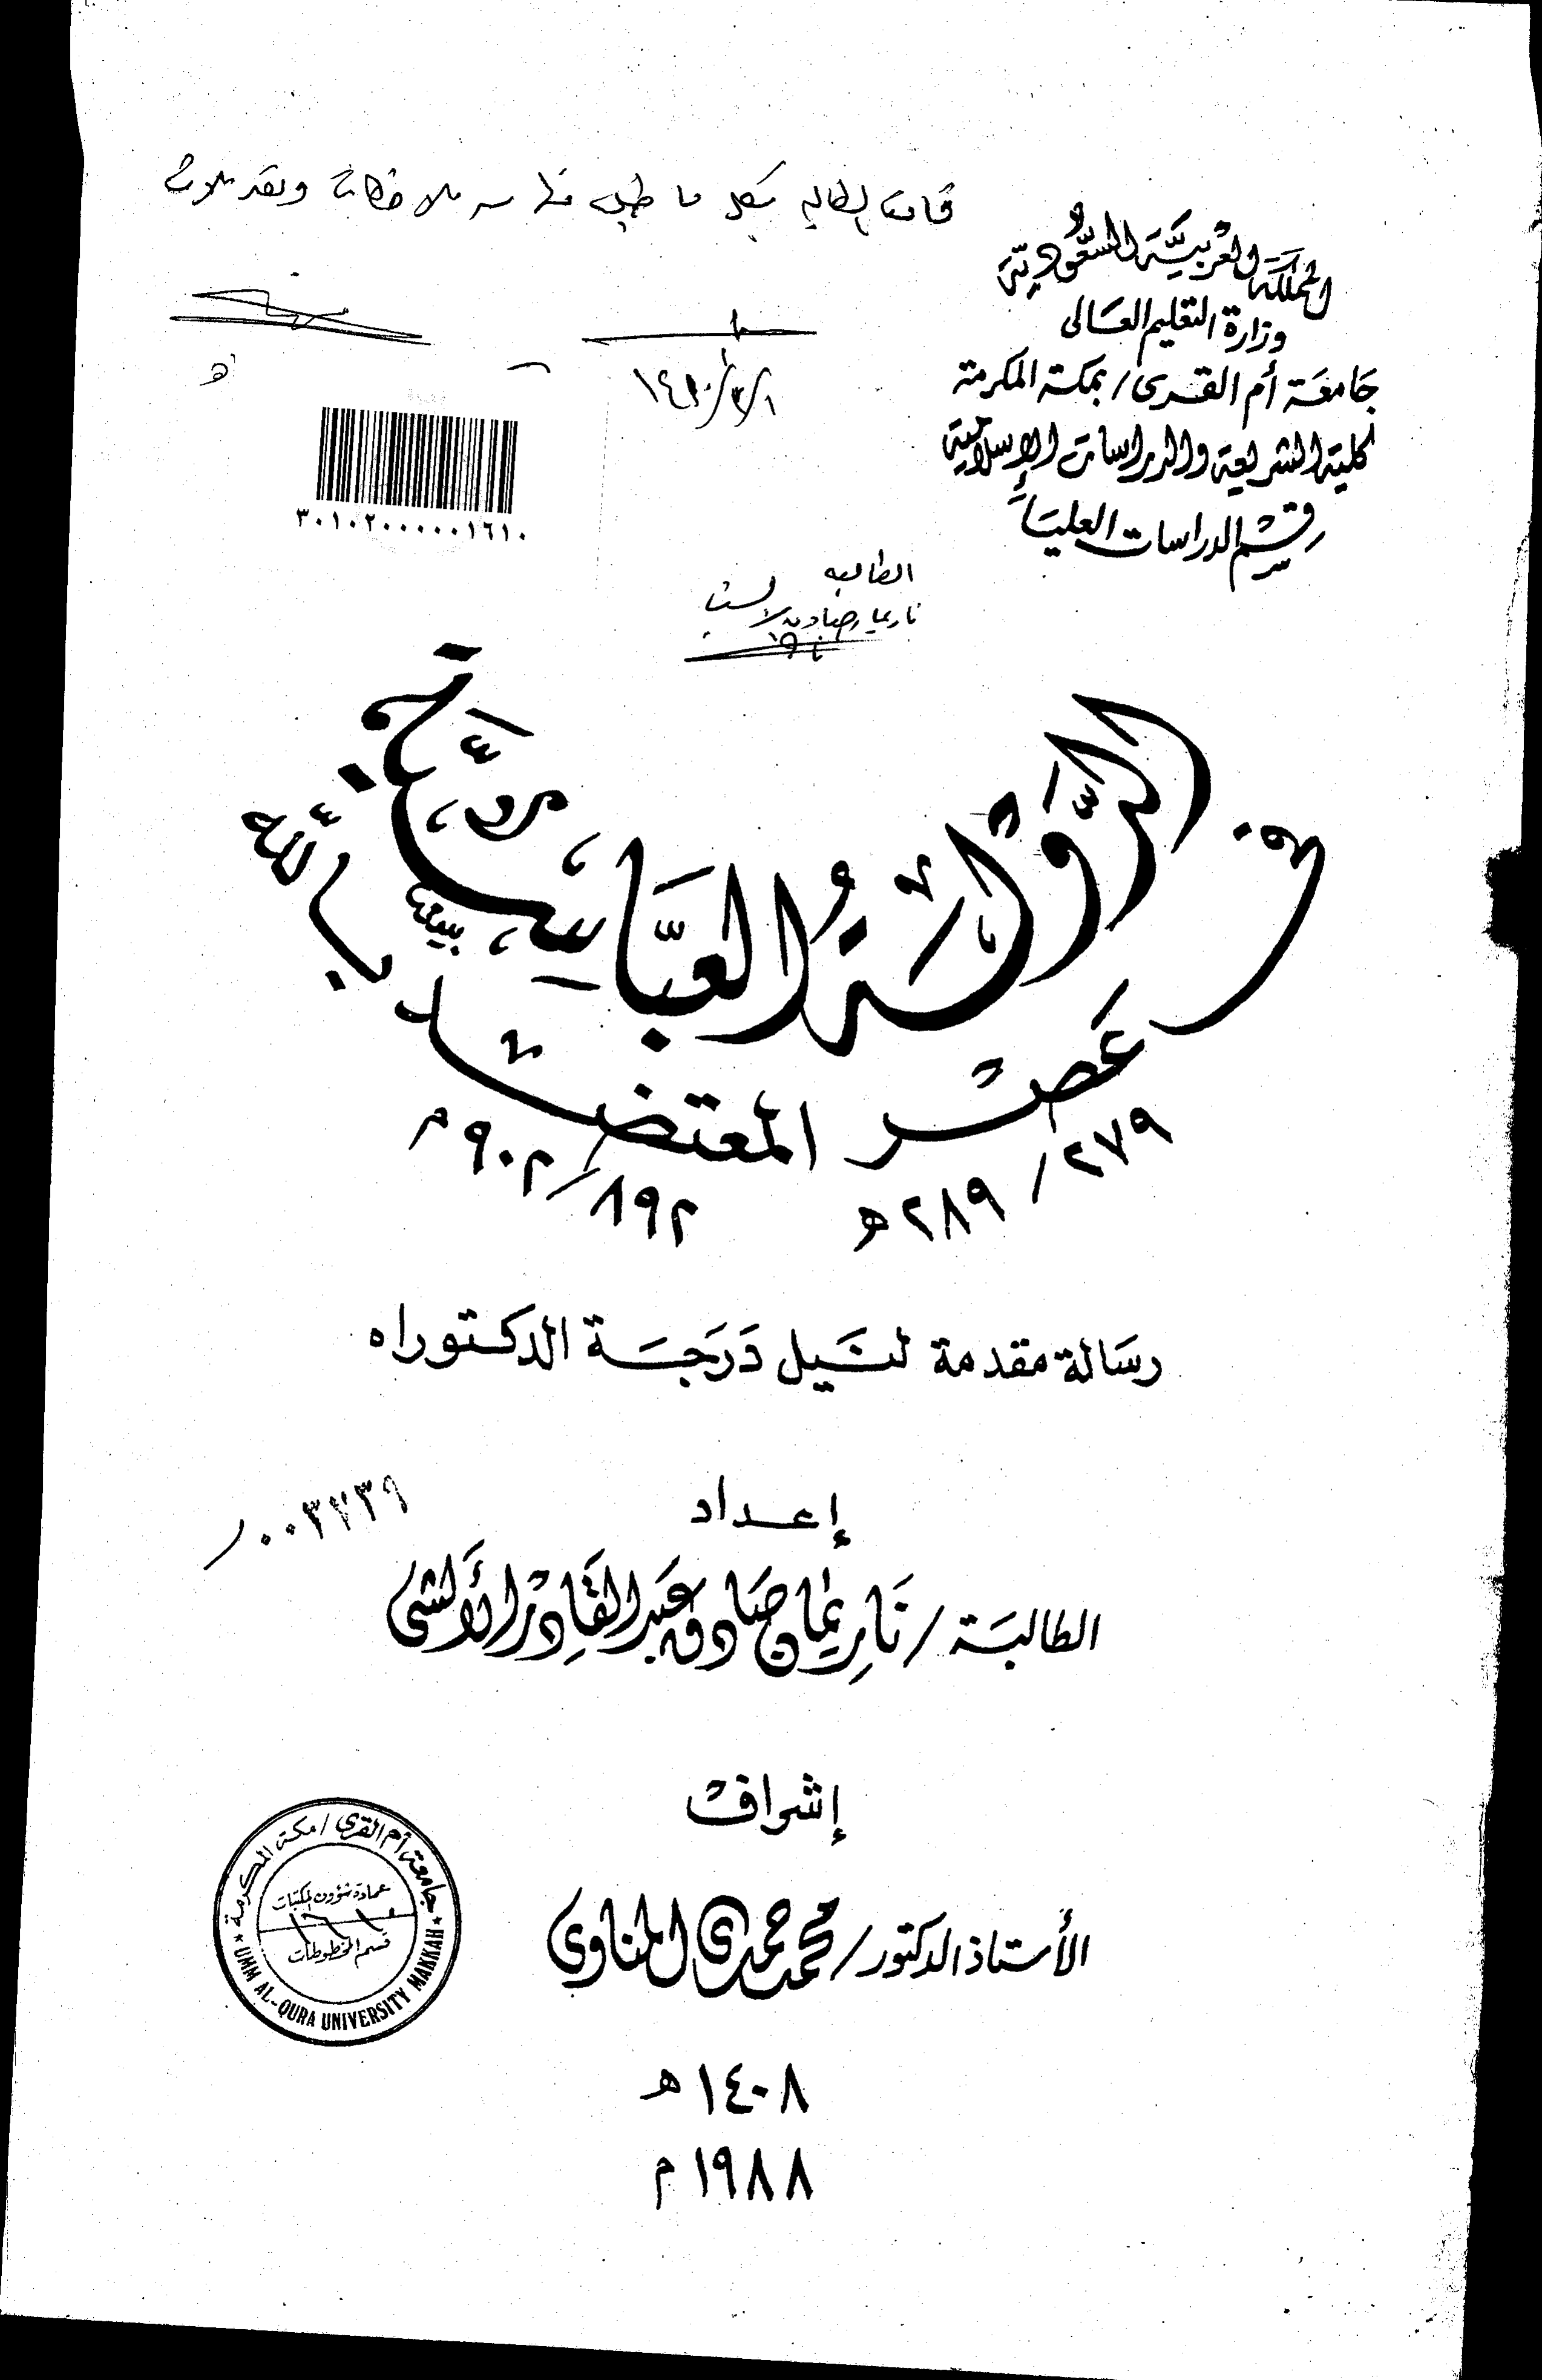 قامت الطالبة بكل ما طلب منها من ملاحظات وتعديلات
المملكة العربية السعودية
وزارة التعليم العالى
جامعة أم القرى / بمكة المكرمة
كلية الشريعة والدراسات الإسلامية
قسم الدراسات العليا
٣٠١٠٢٠٠٠٠٠١٦١٠
الطالبه
ناريمان صادق الألشى
الدَّوْلَةُ العَبَّاسِيَّة
فى عَصْر المعتضد بالله
٢٧٩ / ٢٨٩ هـ ٨٩٢ / ٩٠٢ م
رسَالة مقدمة لنَيل دَرَجَة الدكتوراه
٠٠٣٢٣٩
إعداد
الطالبَة / نَاريمَان صَادق عَبد القَادِرْ الأَلشى
إشرافْ
الأستاذ الدكتور / محمد حمدى المناوى
جامعة أم القرى / مكة المكرمة
عمادة شؤون المكتبات
قسم المخطوطات
* UMM AL-QURA UNIVERSITY MAKKAH *
١٤٠٨ هـ
١٩٨٨ م